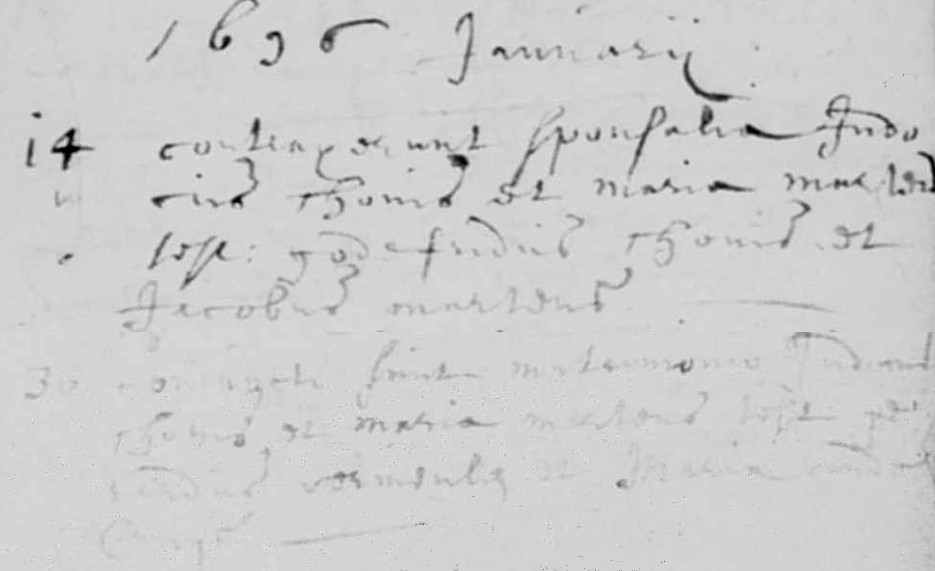 1696 Januarij
14 contraxerunt sponsalia Judo
cus thonis et maria martens
test: godefridus thonis et
Jacobus martens
30 coniuncti sunt matrimonio Judocus
thonis et maria martens test
et maria